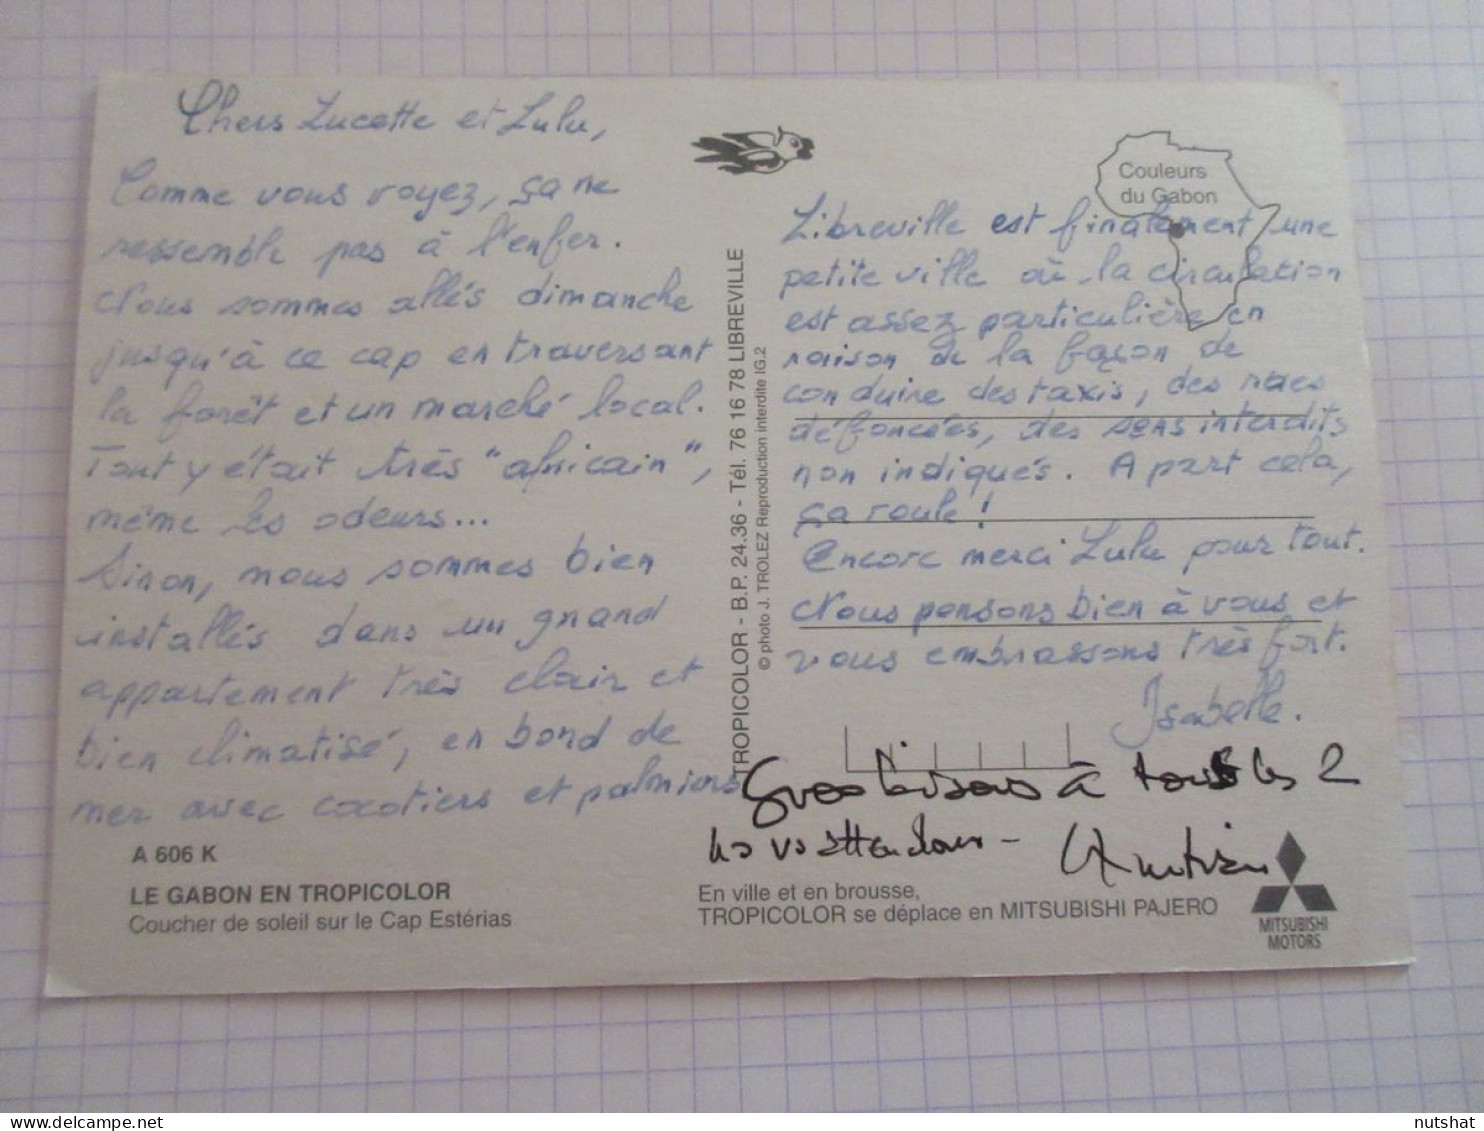 Chers Lucette et Lulu,
Comme vous voyez, ça ne
ressemble pas à l'enfer.
Nous sommes allés dimanche
jusqu'à ce cap en traversant
la forêt et un marché local.
Tout y était très "africain",
même les odeurs...
Sinon, nous sommes bien
installés dans un grand
appartement très clair et
bien climatisé, en bord de
mer avec cocotiers et palmiers
A 606 K
LE GABON EN TROPICOLOR
Coucher de soleil sur le Cap Estérias
TROPICOLOR - B.P. 24.36 - Tél. 76 16 78 LIBREVILLE
© photo J. TROLEZ Reproduction interdite IG.2
Couleurs
du Gabon
Libreville est finalement une
petite ville où la circulation
est assez particulière en
raison de la façon de
conduire des taxis, des rues
défoncées, des sens interdits
non indiqués. A part cela,
ça roule !
Encore merci Lulu pour tout.
Nous pensons bien à vous et
vous embrassons très fort.
Isabelle.
Gros bisous à tous les 2
ns vs attendons -
En ville et en brousse,
TROPICOLOR se déplace en MITSUBISHI PAJERO
MITSUBISHI
MOTORS
nutshat